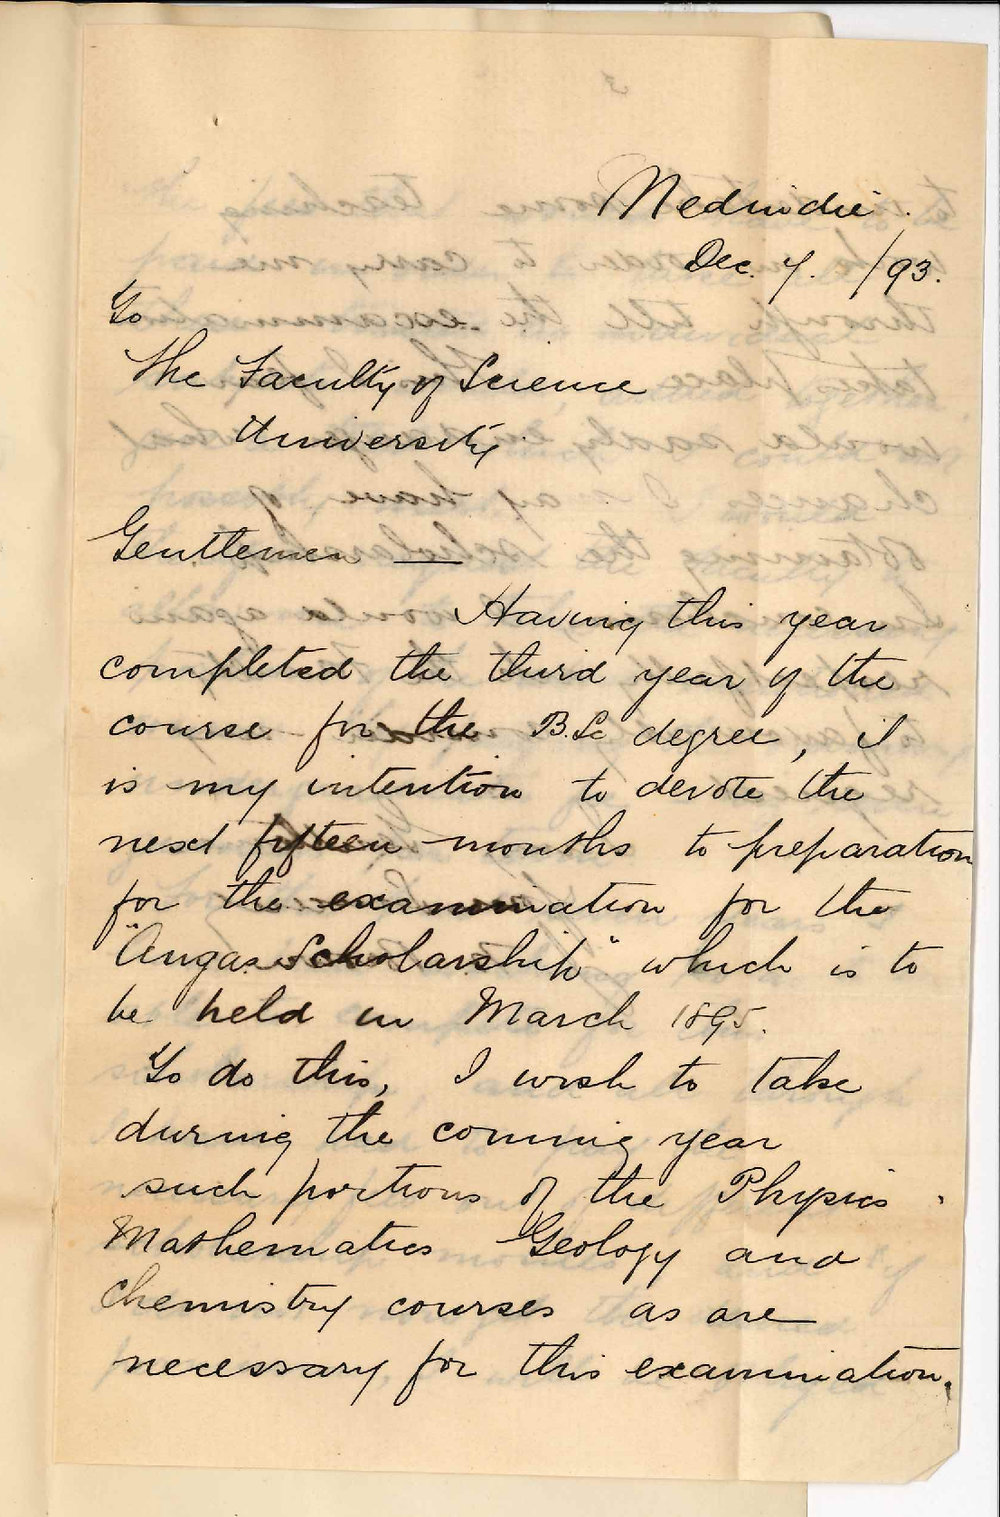 Medindie.
Dec. 7. /93.
To
The Faculty of Science
University.
Gentlemen —
Having this year
completed the third year of the
course for the B.Sc degree, it
is my intention to devote the
next fifteen months to preparation
for the examination for the
"Angas Scholarship" which is to
be held in March 1895.
To do this, I wish to take
during the coming year
such portions of the Physics
Mathematics Geology and
Chemistry courses as are
necessary for this examination.